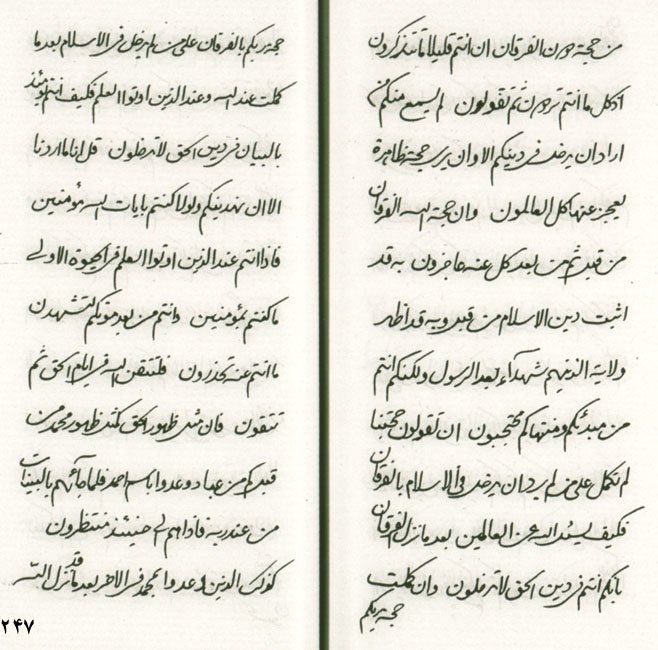 من حجة دون الفرقان ان انتم قليلا ما تتذكرون
اذ كل ما انتم تردون ثم تقولون لم يسمع منكم من
اراد ان يدخل في دينكم الا وان يرى حجة ظاهرة
يعجز عنها كل العالمون وان حجة الله الفرقان
من قبل ثم من بعد كل عنه عاجزون به قد
اثبت دين الاسلام من قبل وبه قد اظهر
ولاية الذينهم شهداء بعد الرسول ولكنكم انتم
من مبدئكم ومنتهاكم محتجبون ان تقولون حجتنا
لم تكمل على من لم يرد ان يدخل في الاسلام بالفرقان
فكيف يسئل الله عن العالمين بعد ما نزل الفرقان
بانكم انتم في دين الحق لا تدخلون وان كملت
حجة ربكم
حجة ربكم بالفرقان على من لم يدخل في الاسلام بعد ما
كملت عند الله وعند الذين اوتوا العلم فكيف انتم يومئذ
بالبيان في دين الحق لا تدخلون قل انا ما اردنا
الا ان نهدينكم ولولا كنتم بايات الله مؤمنين
فاذا انتم عند الذين اوتوا العلم في الحيوة الاولى
ما كنتم بمؤمنين وانتم من بعد موتكم لتشهدن
ما انتم عنه تحذرون فلتتقن الله في ايام الحق ثم
تتقون فان مثل ظهور الحق كمثل ظهور محمد من
قبل كم من عباد وعدوا باسم احمد فلما جائهم بالبينات
من عند ربه فاذا هم الى حينئذ منتظرون
كذلك الذين وعدوا بمحمد في الاخر بعد ما قد نزل الله
۲۴۷